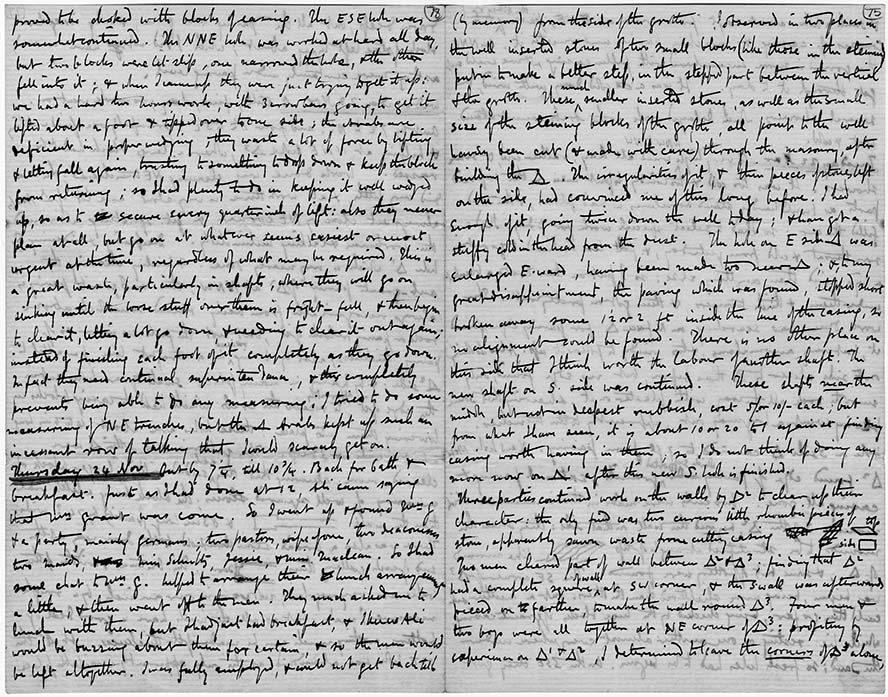 78
proved to be choked with blocks of casing. The ESE hole was
somewhat continued. The NNE hole was worked at hard all day,
but two blocks were let slip, one narrowed the hole, & the other
fell into it; & when I came up they were just trying to get it up:
we had a hard two hours work, with 3 crowbars going, to get it
lifted about a foot & tipped over to one side; the Arabs are
deficient in proper wedging; they waste a lot of force by lifting
& letting fall again, trusting to something to drop down & keep the block
from returning; so I had plenty to do in keeping it well wedged
up, so as to secure every quarter inch of lift: also they never
plan at all, but go on at whatever seems easiest or most
urgent at the time, regardless of what may be required. This is
a great waste, particularly in shafts, where they will go on
sinking until the loose stuff over them is fright-full, & then begin
to clear it, letting a lot go down, & needing to clear it out again,
instead of finishing each foot of it completely as they go down.
In fact they need continual superintendance, & this completely
prevents being able to do any measuring; I tried to do some
measuring of NE trenches, but the Arabs kept up such an
incessant row of talking that I could scarcely get on.
Thursday 24 Nov Out by 7¼, till 10¾. Back for bath &
breakfast. Just as I had done at 12, Ali came saying
that Mrs Grant was come. So I went up & found Mrs G
& a party, mainly germans: two pastors, wife of one, two deaconesses
two maids, Miss Schultz, Jessie, & Miss Maclean. So I had
some chat to Mrs G. helped to arrange their lunch
a little, & then went off to the men. They much asked me to
lunch with them, but I had just had breakfast, & I knew Ali
would be buzzing about them for certain, & so the men would
be left altogether. I was fully employed, & could not get back till
75
(by memory) from the side of the grotto. I observed in two places in
the well inserted stones of two small blocks (like those in the steining)
put in to make a better step, in the stepped part between the vertical
& the grotto. These much smaller inserted stones, as well as the small
size of the steining blocks of the grotto, all point to the well
having been cut (& made with care) through the masonry, after
building the Δ. The irregularities of it, & then pieces of stone left
on the side, had convinced me of this long before. I had
enough of it, going twice down the well today; & have got a
stuffy cold in the head from the dust. The hole on E side Δ was
enlarged E.ward, having been made too near Δ; & to my
great disappointment, the paving which was found, stopped short
broken away some 1 2 or 2 ft inside the line of the casing, so
no alignment could be found. There is no other place on
this side that I think worth the labour of another shaft. The
new shaft on S. side was continued. These shafts near the
middle, but not in deepest rubbish, cost 5/ or 10/- each; but
from what I have seen, it is about 10 or 20 to 1 against finding
casing worth having in them; so I do not think of doing any
more now on Δ¹ after this new S. hole is finished.
Three parties continued work on the walls by Δ² to clear up their
character: the only find was two curious little rhomboi pieces of
stone, apparently sawn waste from cutting casing top
side
Two men cleared part of wall between Δ² & Δ³; finding that Δ²
had a complete square of wall, at SW corner, & the S wall was afterwards
pieced on farther, to make the wall round Δ³. Four men &
two boys were all together at NE corner of Δ³; profiting by
experience on Δ¹ & Δ², I determined to leave the corners of Δ³ alone,